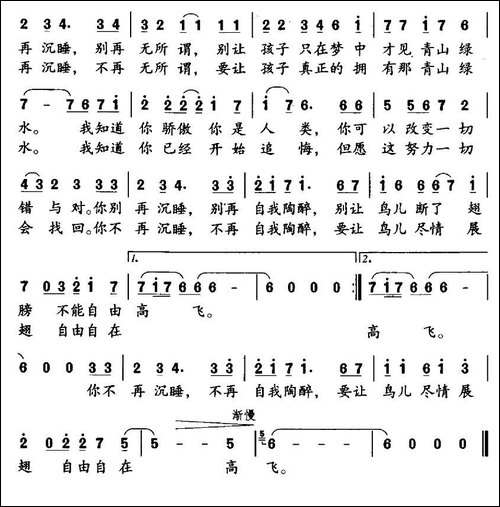 2 3 4. 3 4 | 3 2 1 1 1 2 | 3 2 3 4 6 1 | 7 7 1 7 6
再沉睡，别再 无所谓，别让 孩子 只在梦 中 才见 青山 绿
再沉睡，不再 无所谓，要让 孩子 真正的 拥 有那 青山 绿
7 - 7 6 7 1 | 2 2 2 2 1 7 | 1 7 6. 6 6 | 5 5 6 7 2
水。 我知道 你 骄傲 你 是 人 类，你可 以 改变一切
水。 我知道 你 已经 开 始 追 悔，但愿 这 努力一切
4 3 3 2 3 3 3 | 2 3 4. 3 3 | 2 1 7 1. 6 7 | 1 6 6 6 7 1
错 与 对。你别 再 沉睡，别再 自我陶醉，别让 鸟儿 断了 翅
会 找 回。你不 再 沉睡，不再 自我陶醉，要让 鸟儿 尽情 展
1. 2.
7 0 3 2 1 7 | 7 1 7 6 6 6 - | 6 0 0 0 :| 7 1 7 6 6 6 -
膀 不能自由 高 飞。
翅 自由自在 高 飞。
6 0 0 3 3 | 2 3 4. 3 3 | 2 2 1 7 1. 6 7 | 1 1 6 1 3
你不 再 沉睡，不再 自我陶醉，要让 鸟儿 尽情 展
渐慢
2 0 2 2 7 5 | 5 - - 5 | 5 6 - - - | 6 0 0 0
翅 自由自在 高 飞。